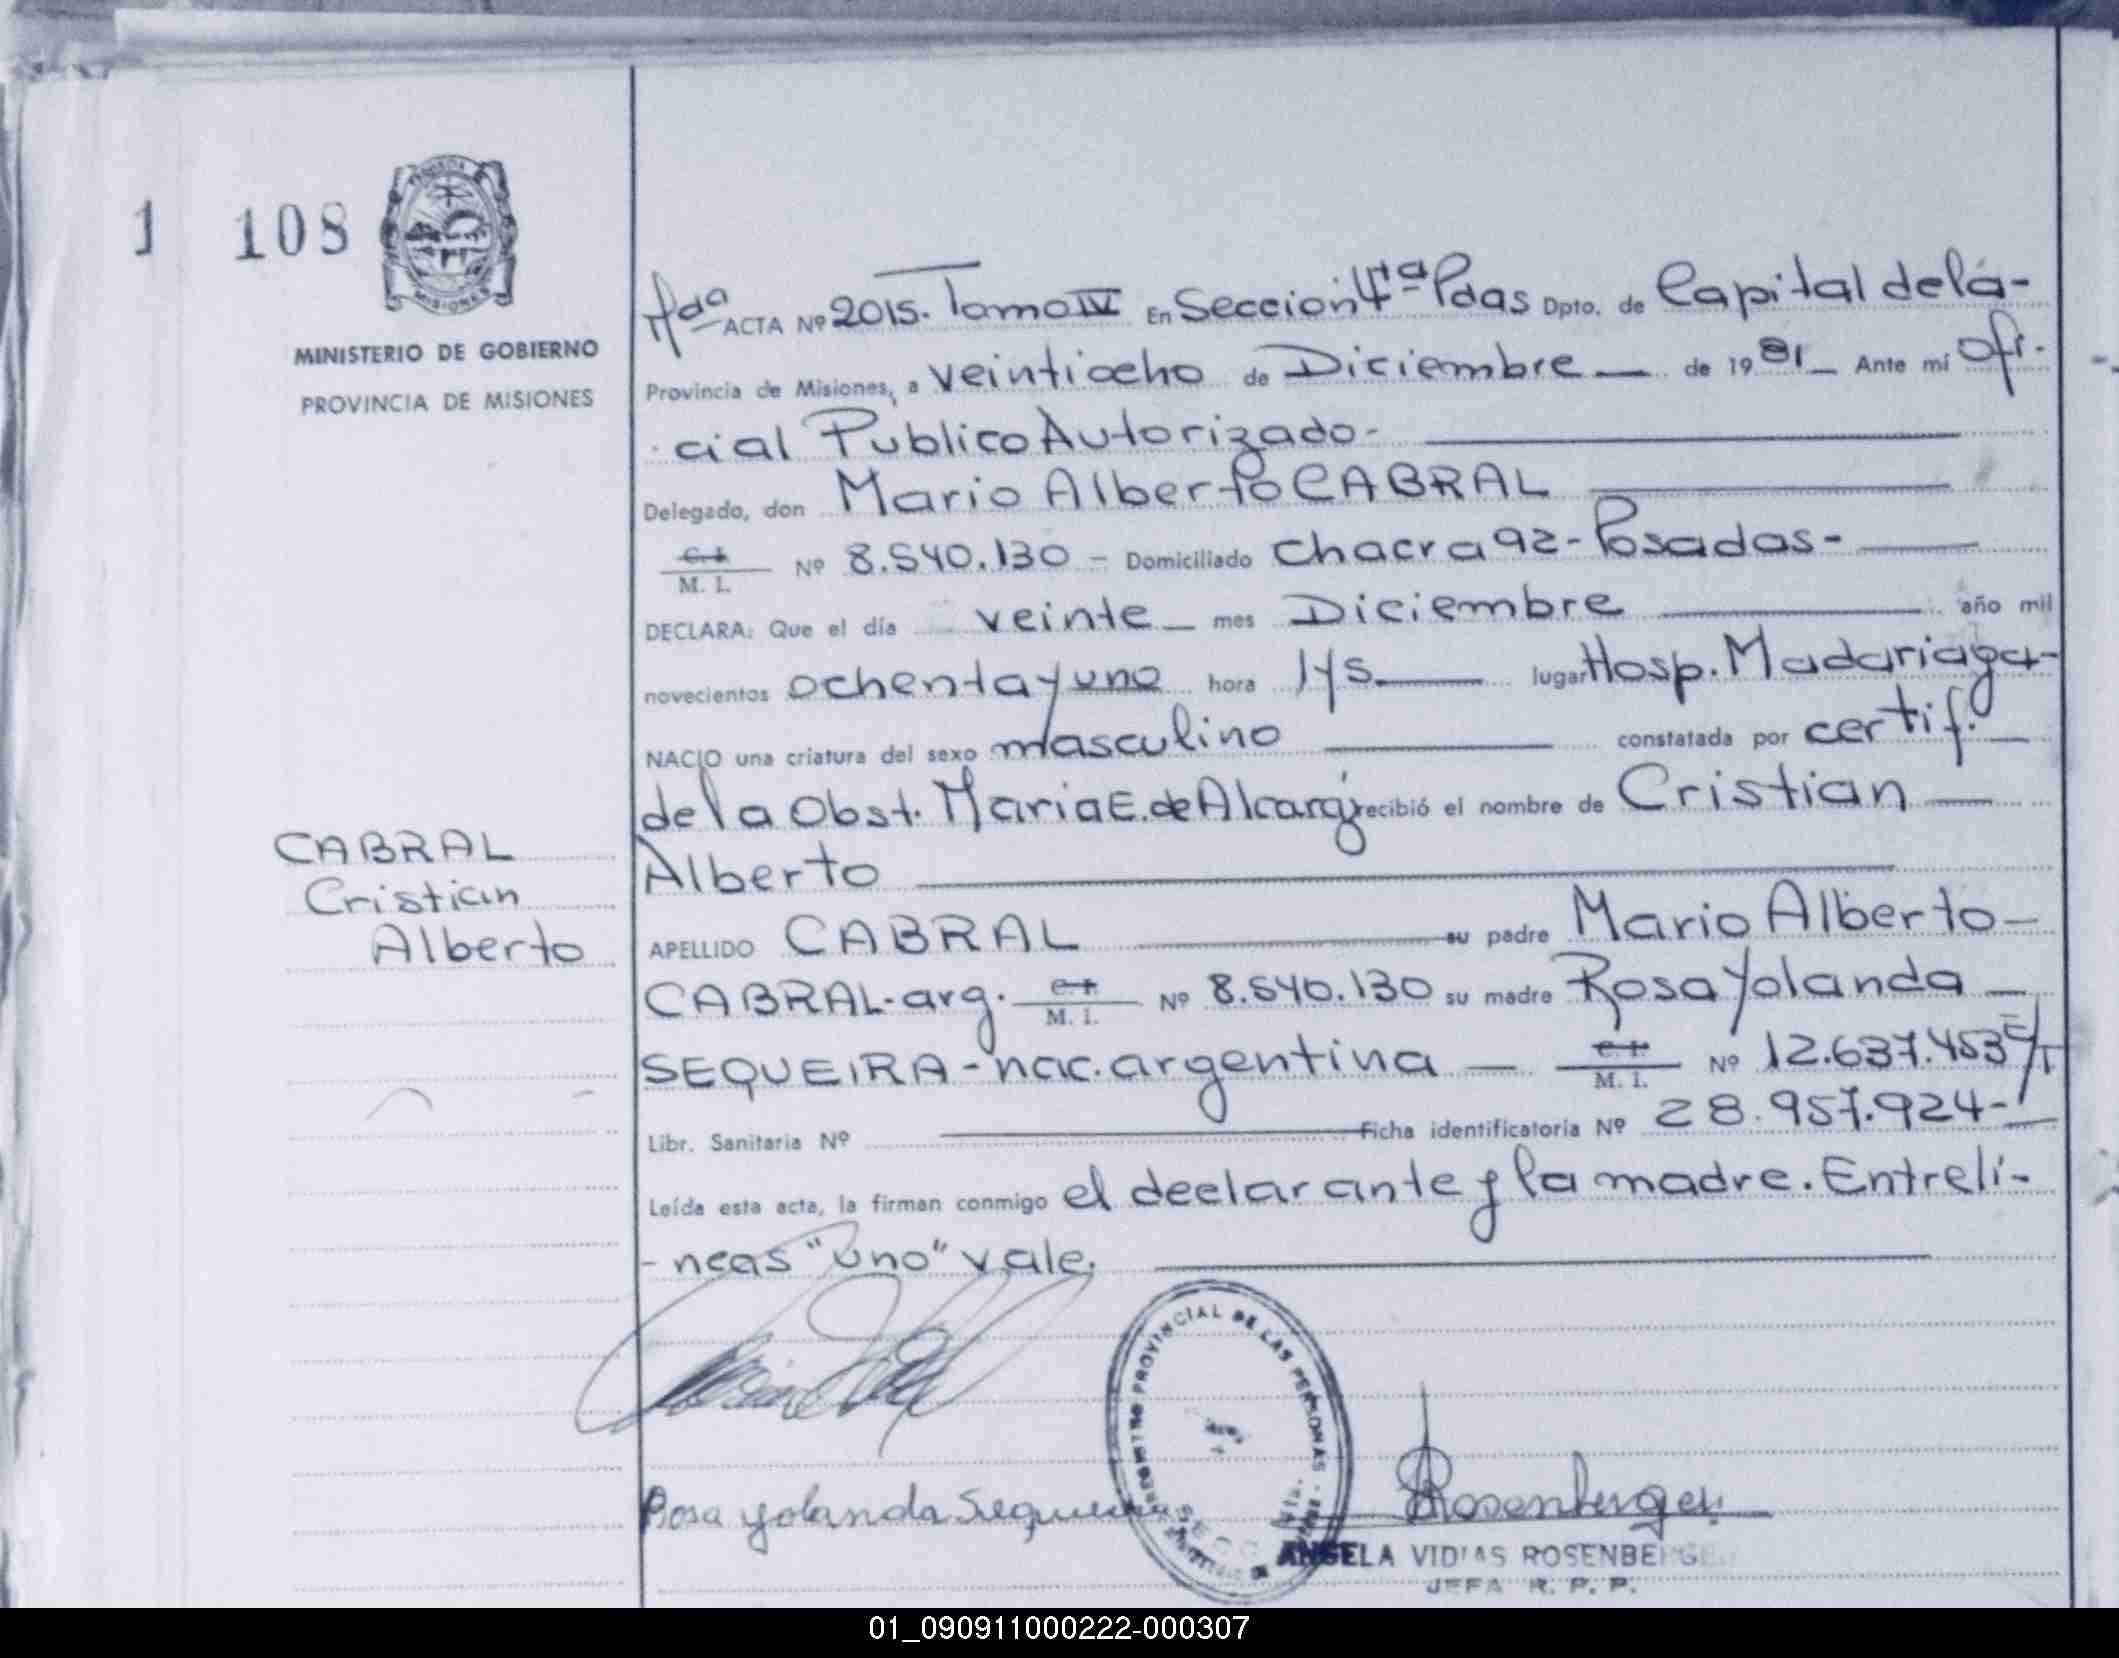 1 108
MISIONES
MINISTERIO DE GOBIERNO
PROVINCIA DE MISIONES
ACTA Nº 2015. Tomo IV En Sección 4ta Pdas Dpto. de Capital de la-
Provincia de Misiones, a veintiocho de Diciembre — de 1981 — Ante mí Ofi-
cial Publico Autorizado-
Delegado, don Mario Alberto CABRAL
C. I. / M. I. Nº 8.540.130 - Domiciliado Chacra 92-Posadas-
DECLARA: Que el día veinte — mes Diciembre año mil
novecientos ochenta y uno hora 1ys. lugar Hosp. Madariaga-
NACIO una criatura del sexo masculino constatada por certif.
de la Obst. Maria E. de Alcaráz recibió el nombre de Cristian
Alberto
APELLIDO CABRAL su padre Mario Alberto-
CABRAL-arg. C. I. / M. I. Nº 8.540.130 su madre Rosa Yolanda
SEQUEIRA-nac. argentina — C. I. / M. I. Nº 12.637.453 E/T
Libr. Sanitaria Nº Ficha identificatoria Nº 28.957.924-
Leída esta acta, la firman conmigo el declarante y la madre. Entrelí-
-neas "uno" vale.
CABRAL
Cristian
Alberto
REGISTRO PROVINCIAL DE LAS PERSONAS
SECC 4ta.
Rosa Yolanda Sequeira
Rosenberger
ANGELA VIDIAS ROSENBERGE
JEFA R. P. P.
01_090911000222-000307